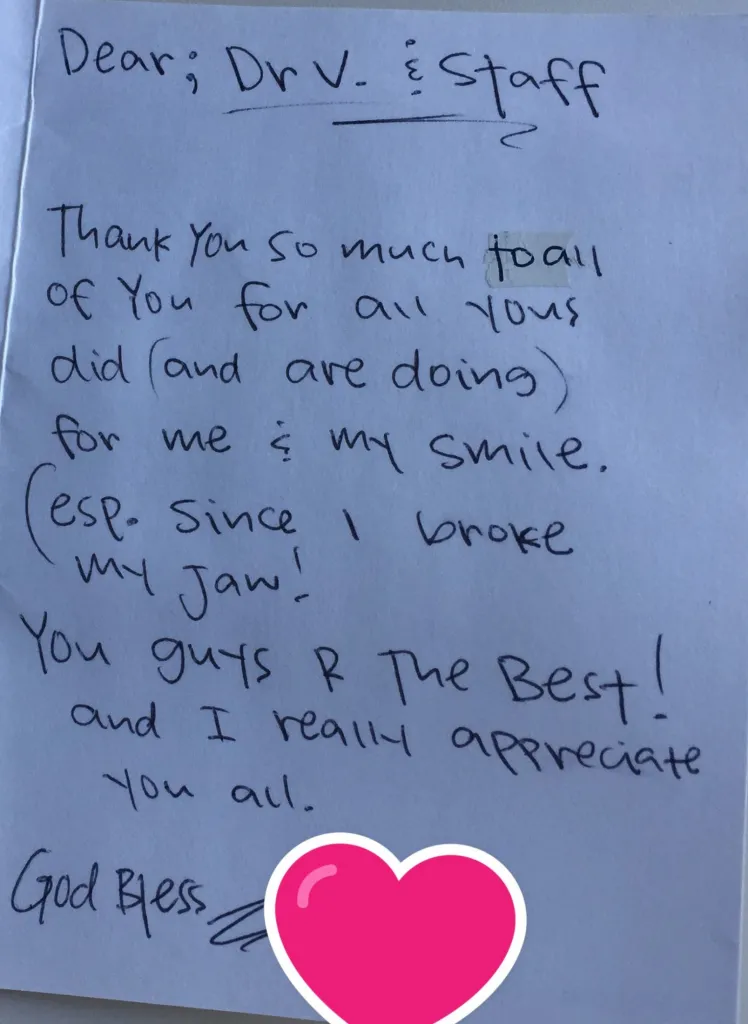 Dear; Dr V. & Staff
Thank You so much to all
of You for all yous
did (and are doing)
for me & my smile.
(esp. since I broke
my Jaw!
You guys R The Best!
and I really appreciate
you all.
God Bless